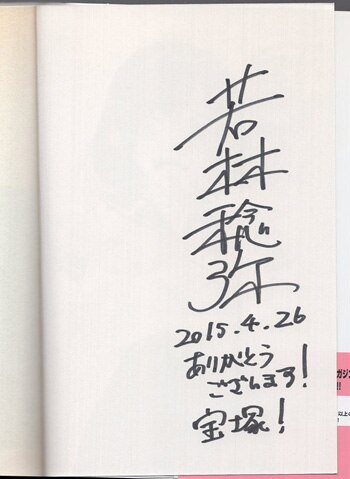 若林稔弥
2015.4.26
ありがとう
ございます!
宝塚!
ガジン
!!
以上の
!